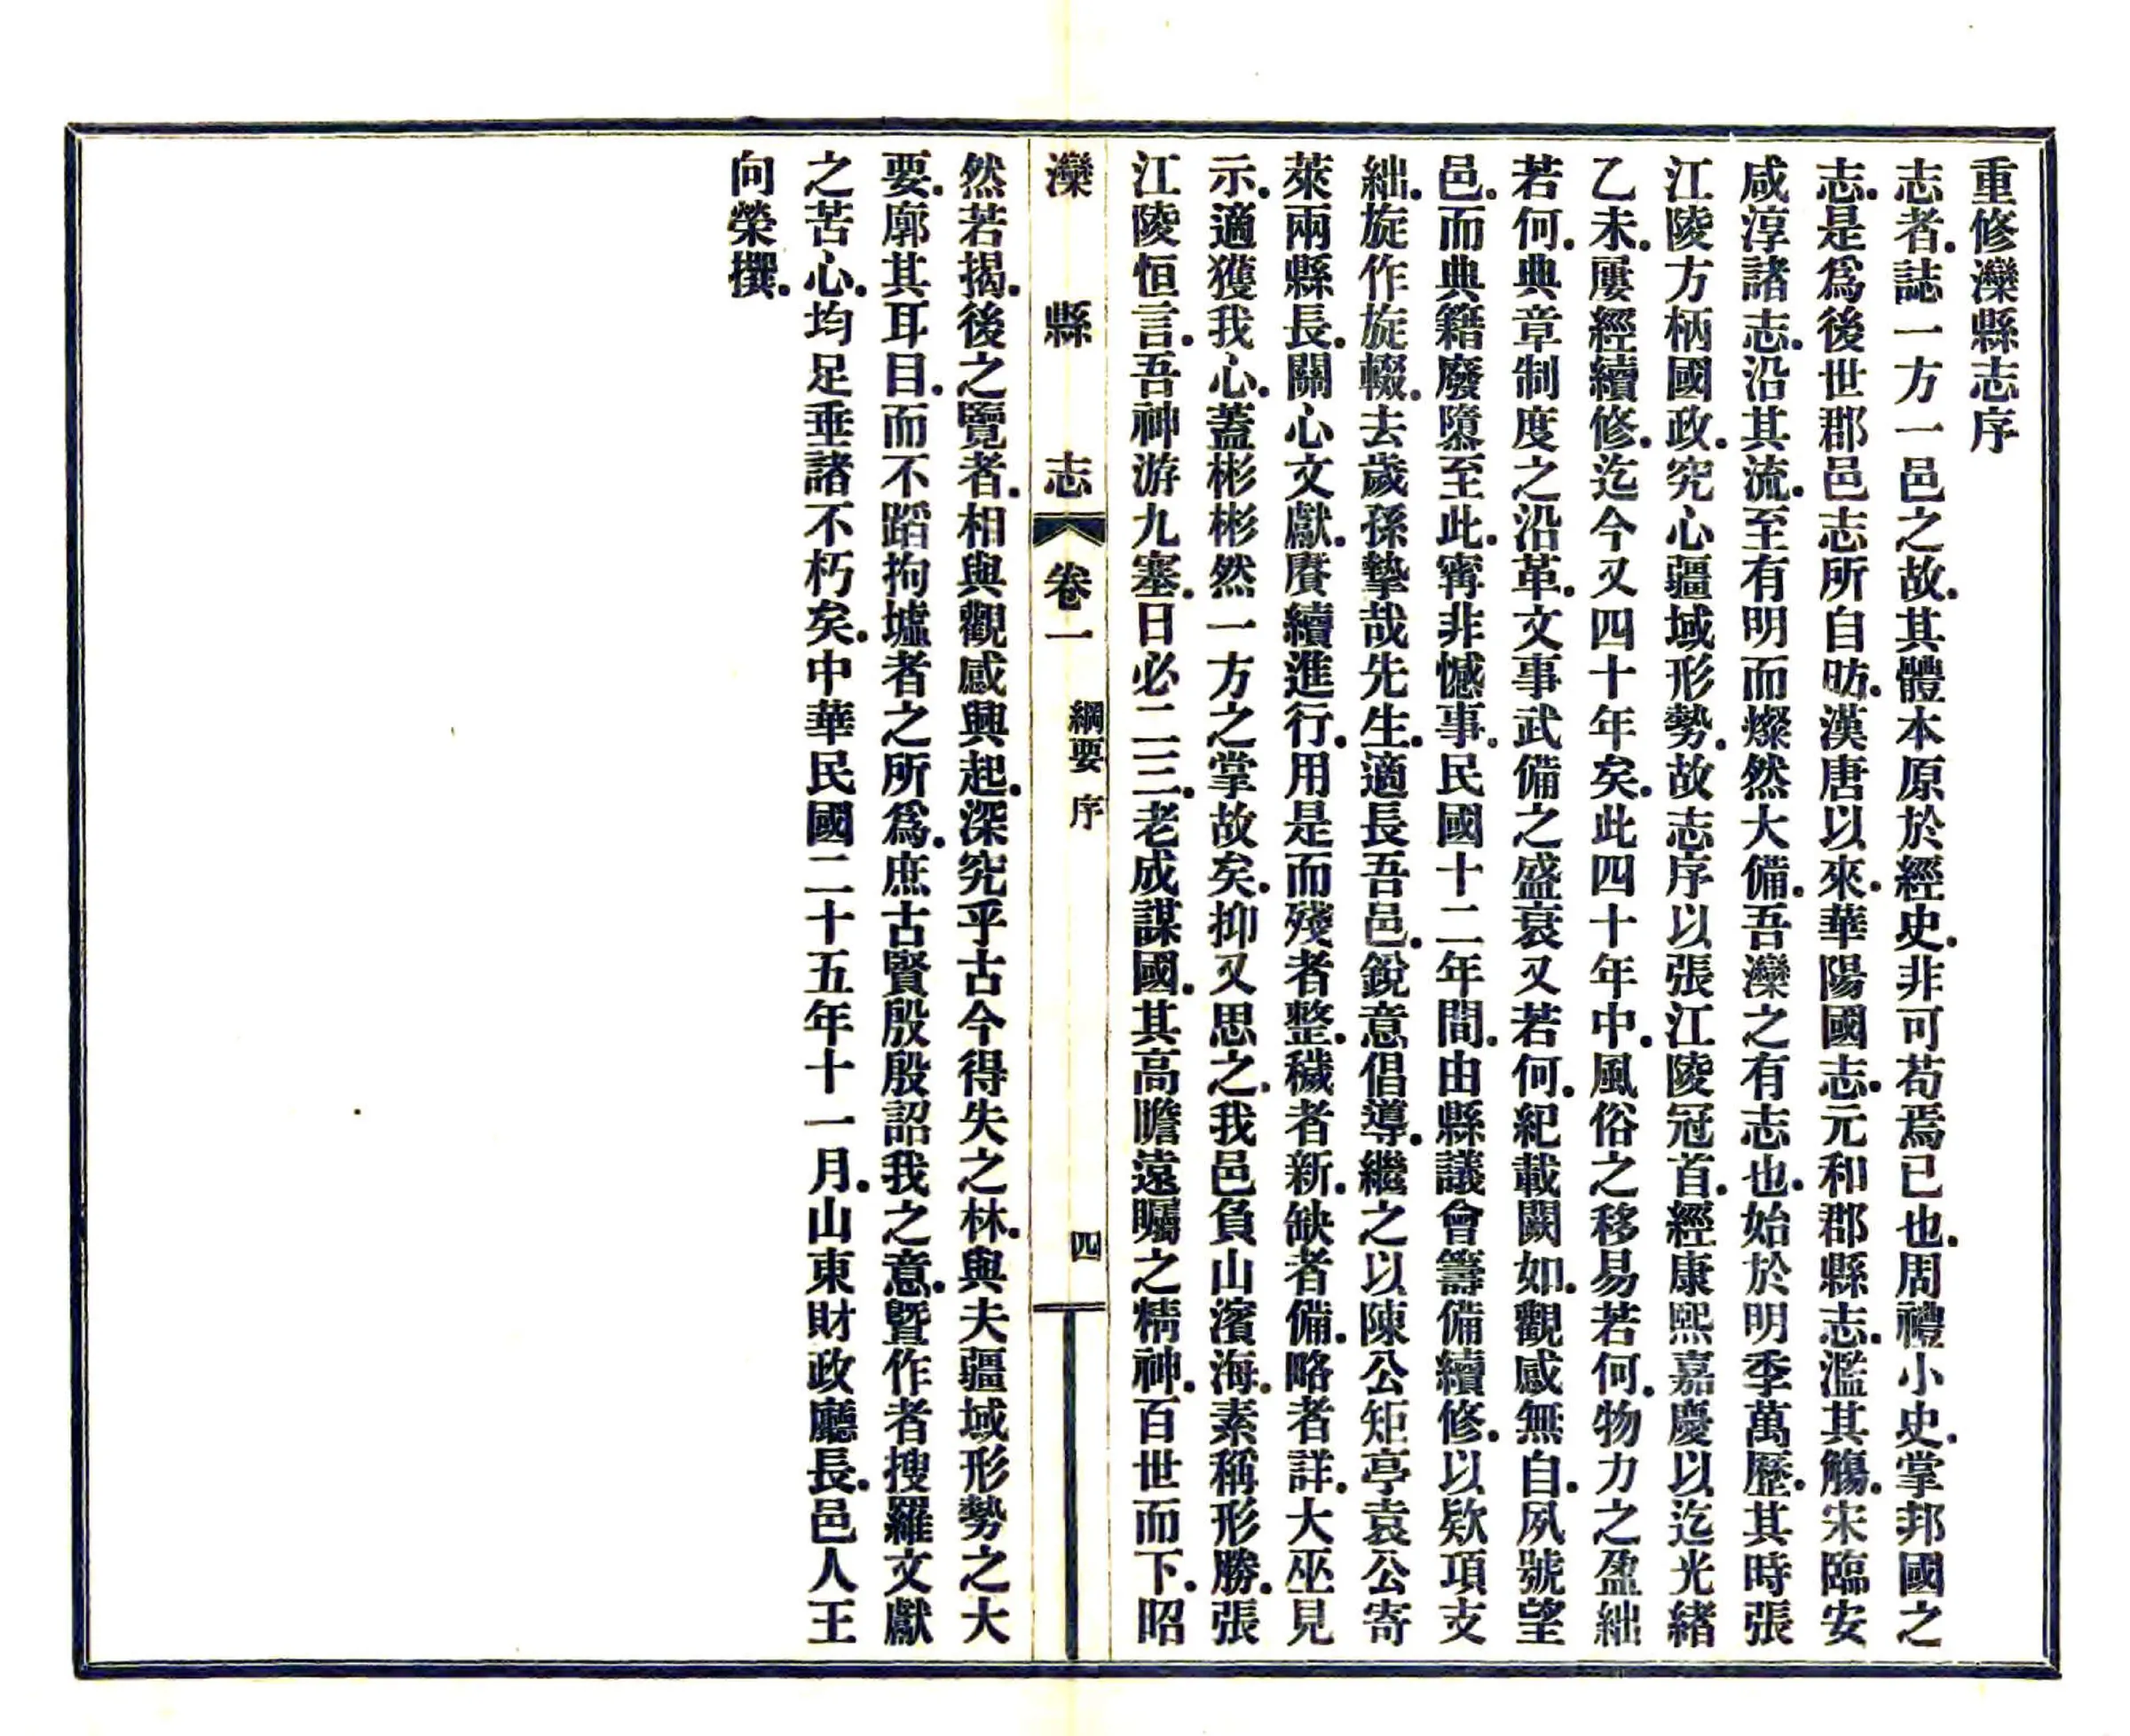 重修灤縣志序
志者.誌一方一邑之故.其體本原於經史.非可苟焉已也.周禮小史.掌邦國之
志.是爲後世郡邑志所自昉.漢唐以來.華陽國志.元和郡縣志.濫其觴.宋臨安
咸淳諸志.沿其流.至有明而燦然大備.吾灤之有志也.始於明季萬歷.其時張
江陵方柄國政.究心疆域形勢.故志序以張江陵冠首.經康熙嘉慶以迄光緒
乙未.屢經續修.迄今又四十年矣.此四十年中.風俗之移易若何.物力之盈絀
若何.典章制度之沿革.文事武備之盛衰又若何.紀載闕如.觀感無自.夙號望
邑.而典籍廢隳至此.寗非憾事.民國十二年間.由縣議會籌備續修.以欵項支
絀.旋作旋輟.去歲孫摯哉先生.適長吾邑.銳意倡導.繼之以陳公矩亭袁公寄
萊兩縣長.關心文獻.賡續進行.用是而殘者整.穢者新.缺者備.略者詳.大巫見
示.適獲我心.蓋彬彬然一方之掌故矣.抑又思之.我邑負山濱海.素稱形勝.張
江陵恒言.吾神游九塞.日必二三.老成謀國.其高瞻遠矚之精神.百世而下.昭
灤縣志 卷一 綱要 序 四
然若揭.後之覽者.相與觀感興起.深究乎古今得失之林.與夫疆域形勢之大
要.廓其耳目.而不蹈拘墟者之所爲.庶古賢殷殷詔我之意.暨作者搜羅文獻
之苦心.均足垂諸不朽矣.中華民國二十五年十一月.山東財政廳長.邑人王
向榮撰.